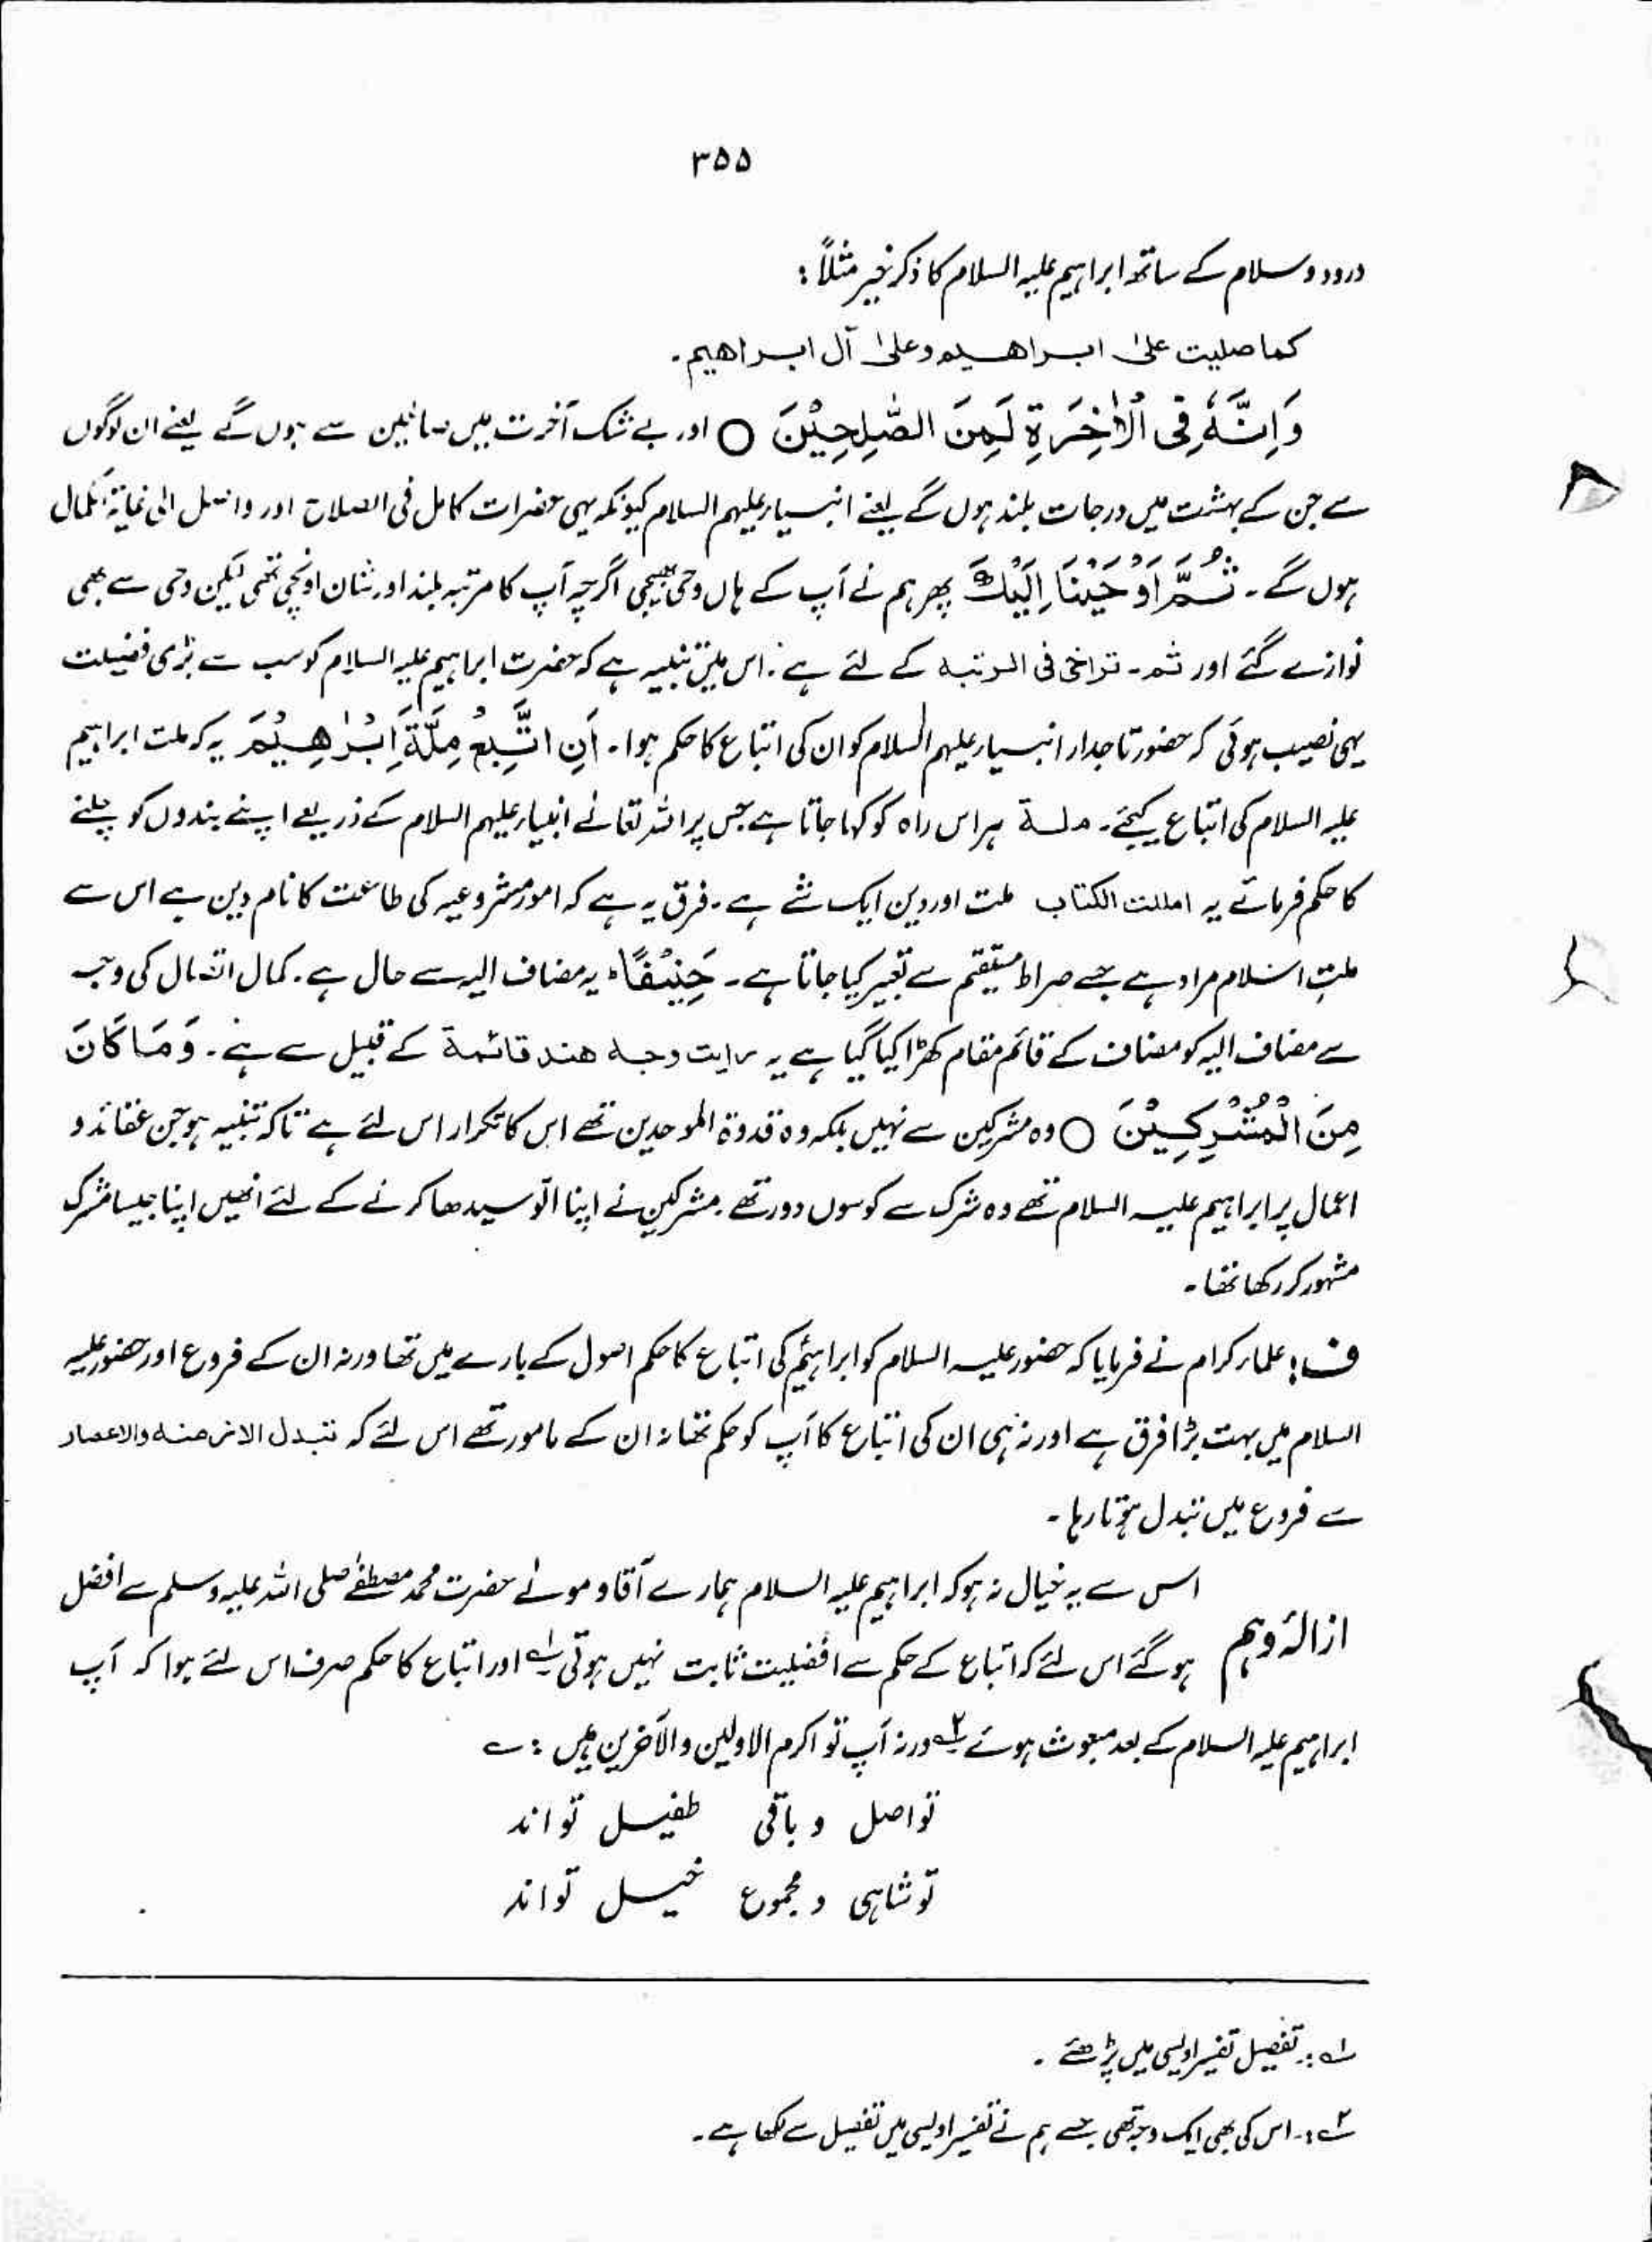 ۳۵۵
درود و سلام کے ساتھ ابراہیم علیہ السلام کا ذکر خیر مثلاً :
کما صلیت علیٰ ابراھیم وعلیٰ آل ابراھیم۔
وَاِنَّہٗ فِی الْاٰخِرَۃِ لَمِنَ الصّٰلِحِیْنَ ○ اور بے شک آخرت میں صالحین سے ہوں گے یعنے ان لوگوں
سے جن کے بہشت میں درجات بلند ہوں گے یعنے انبیاء علیہم السلام کیونکہ یہی حضرات کامل فی الصلاح اور واصل الی غایۃ الکمال
ہوں گے۔ ثُمَّ اَوْحَیْنَا اِلَیْکَ پھر ہم نے آپ کے ہاں وحی بھیجی اگرچہ آپ کا مرتبہ بلند اور شان اونچی تھی لیکن وحی سے بھی
نوازے گئے اور ثم۔ تراخی فی المرتبہ کے لئے ہے۔ اس میں تنبیہ ہے کہ حضرت ابراہیم علیہ السلام کو سب سے بڑی فضیلت
یہی نصیب ہوئی کہ حضور تاجدار انبیاء علیہم السلام کو ان کی اتباع کا حکم ہوا۔ اَنِ اتَّبِعْ مِلَّۃَ اِبْرٰھِیْمَ یہ کہ ملت ابراہیم
علیہ السلام کی اتباع کیجئے۔ ملۃ ہر اس راہ کو کہا جاتا ہے جس پر اللہ تعالٰے انبیاء علیہم السلام کے ذریعے اپنے بندوں کو چلنے
کا حکم فرمائے یہ امللت الکتاب ملت اور دین ایک شے ہے۔ فرق یہ ہے کہ امور مشروعیہ کی طاعت کا نام دین ہے اس سے
ملتِ اسلام مراد ہے جسے صراط مستقیم سے تعبیر کیا جاتا ہے۔ حَنِیْفًا ؕ یہ مضاف الیہ سے حال ہے۔ کمال اتصال کی وجہ
سے مضاف الیہ کو مضاف کے قائم مقام کھڑا کیا گیا ہے یہ رایت وجہ ھند قائمۃ کے قبیل سے ہے۔ وَمَا کَانَ
مِنَ الْمُشْرِکِیْنَ ○ وہ مشرکین سے نہیں بلکہ وہ قدوۃ الموحدین تھے اس کا تکرار اس لئے ہے تاکہ تنبیہ ہو جن عقائد و
اعمال پر ابراہیم علیہ السلام تھے وہ شرک سے کوسوں دور تھے۔ مشرکین نے اپنا الّو سیدھا کرنے کے لئے انھیں اپنا جیسا مشرک
مشہور کر رکھا تھا۔
ف : علماء کرام نے فرمایا کہ حضور علیہ السلام کو ابراہیمؑ کی اتباع کا حکم اصول کے بارے میں تھا ورنہ ان کے فروع اور حضور علیہ
السلام میں بہت بڑا فرق ہے اور نہ ہی ان کی اتباع کا آپ کو حکم تھا نہ ان کے مامور تھے اس لئے کہ تتبدل الازمنہ والاعصار
سے فروع میں تبدل ہوتا رہا۔
اس سے یہ خیال نہ ہو کہ ابراہیم علیہ السلام ہمارے آقا و مولٰے حضرت محمد مصطفٰے صلی اللہ علیہ وسلم سے افضل
ازالۂ وہم ہو گئے اس لئے کہ اتباع کے حکم سے افضلیت ثابت نہیں ہوتی ؎۱ اور اتباع کا حکم صرف اس لئے ہوا کہ آپ
ابراہیم علیہ السلام کے بعد مبعوث ہوئے ؎۲ ورنہ آپ تو اکرم الاولین والآخرین ہیں : ؎
تو اصل و باقی طفیل تو اند
تو شاہی و مجموع خیل تو اند
؎۱ :۔ تفصیل تفسیر اویسی میں پڑھئے ۔
؎۲ :۔ اس کی بھی ایک وجہ تھی جسے ہم نے تفسیر اویسی میں تفصیل سے لکھا ہے۔